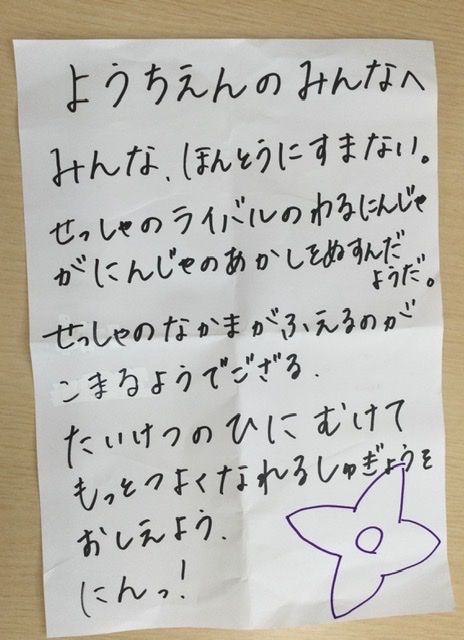 ようちえんのみんなへ
みんな、ほんとうにすまない。
せっしゃのライバルのわるにんじゃ
がにんじゃのあかしをぬすんだ
ようだ。
せっしゃのなかまがふえるのが
こまるようでござる.
たいけつのひにむけて
もっとつよくなれるしゅぎょうを
おしえよう.
にんっ!